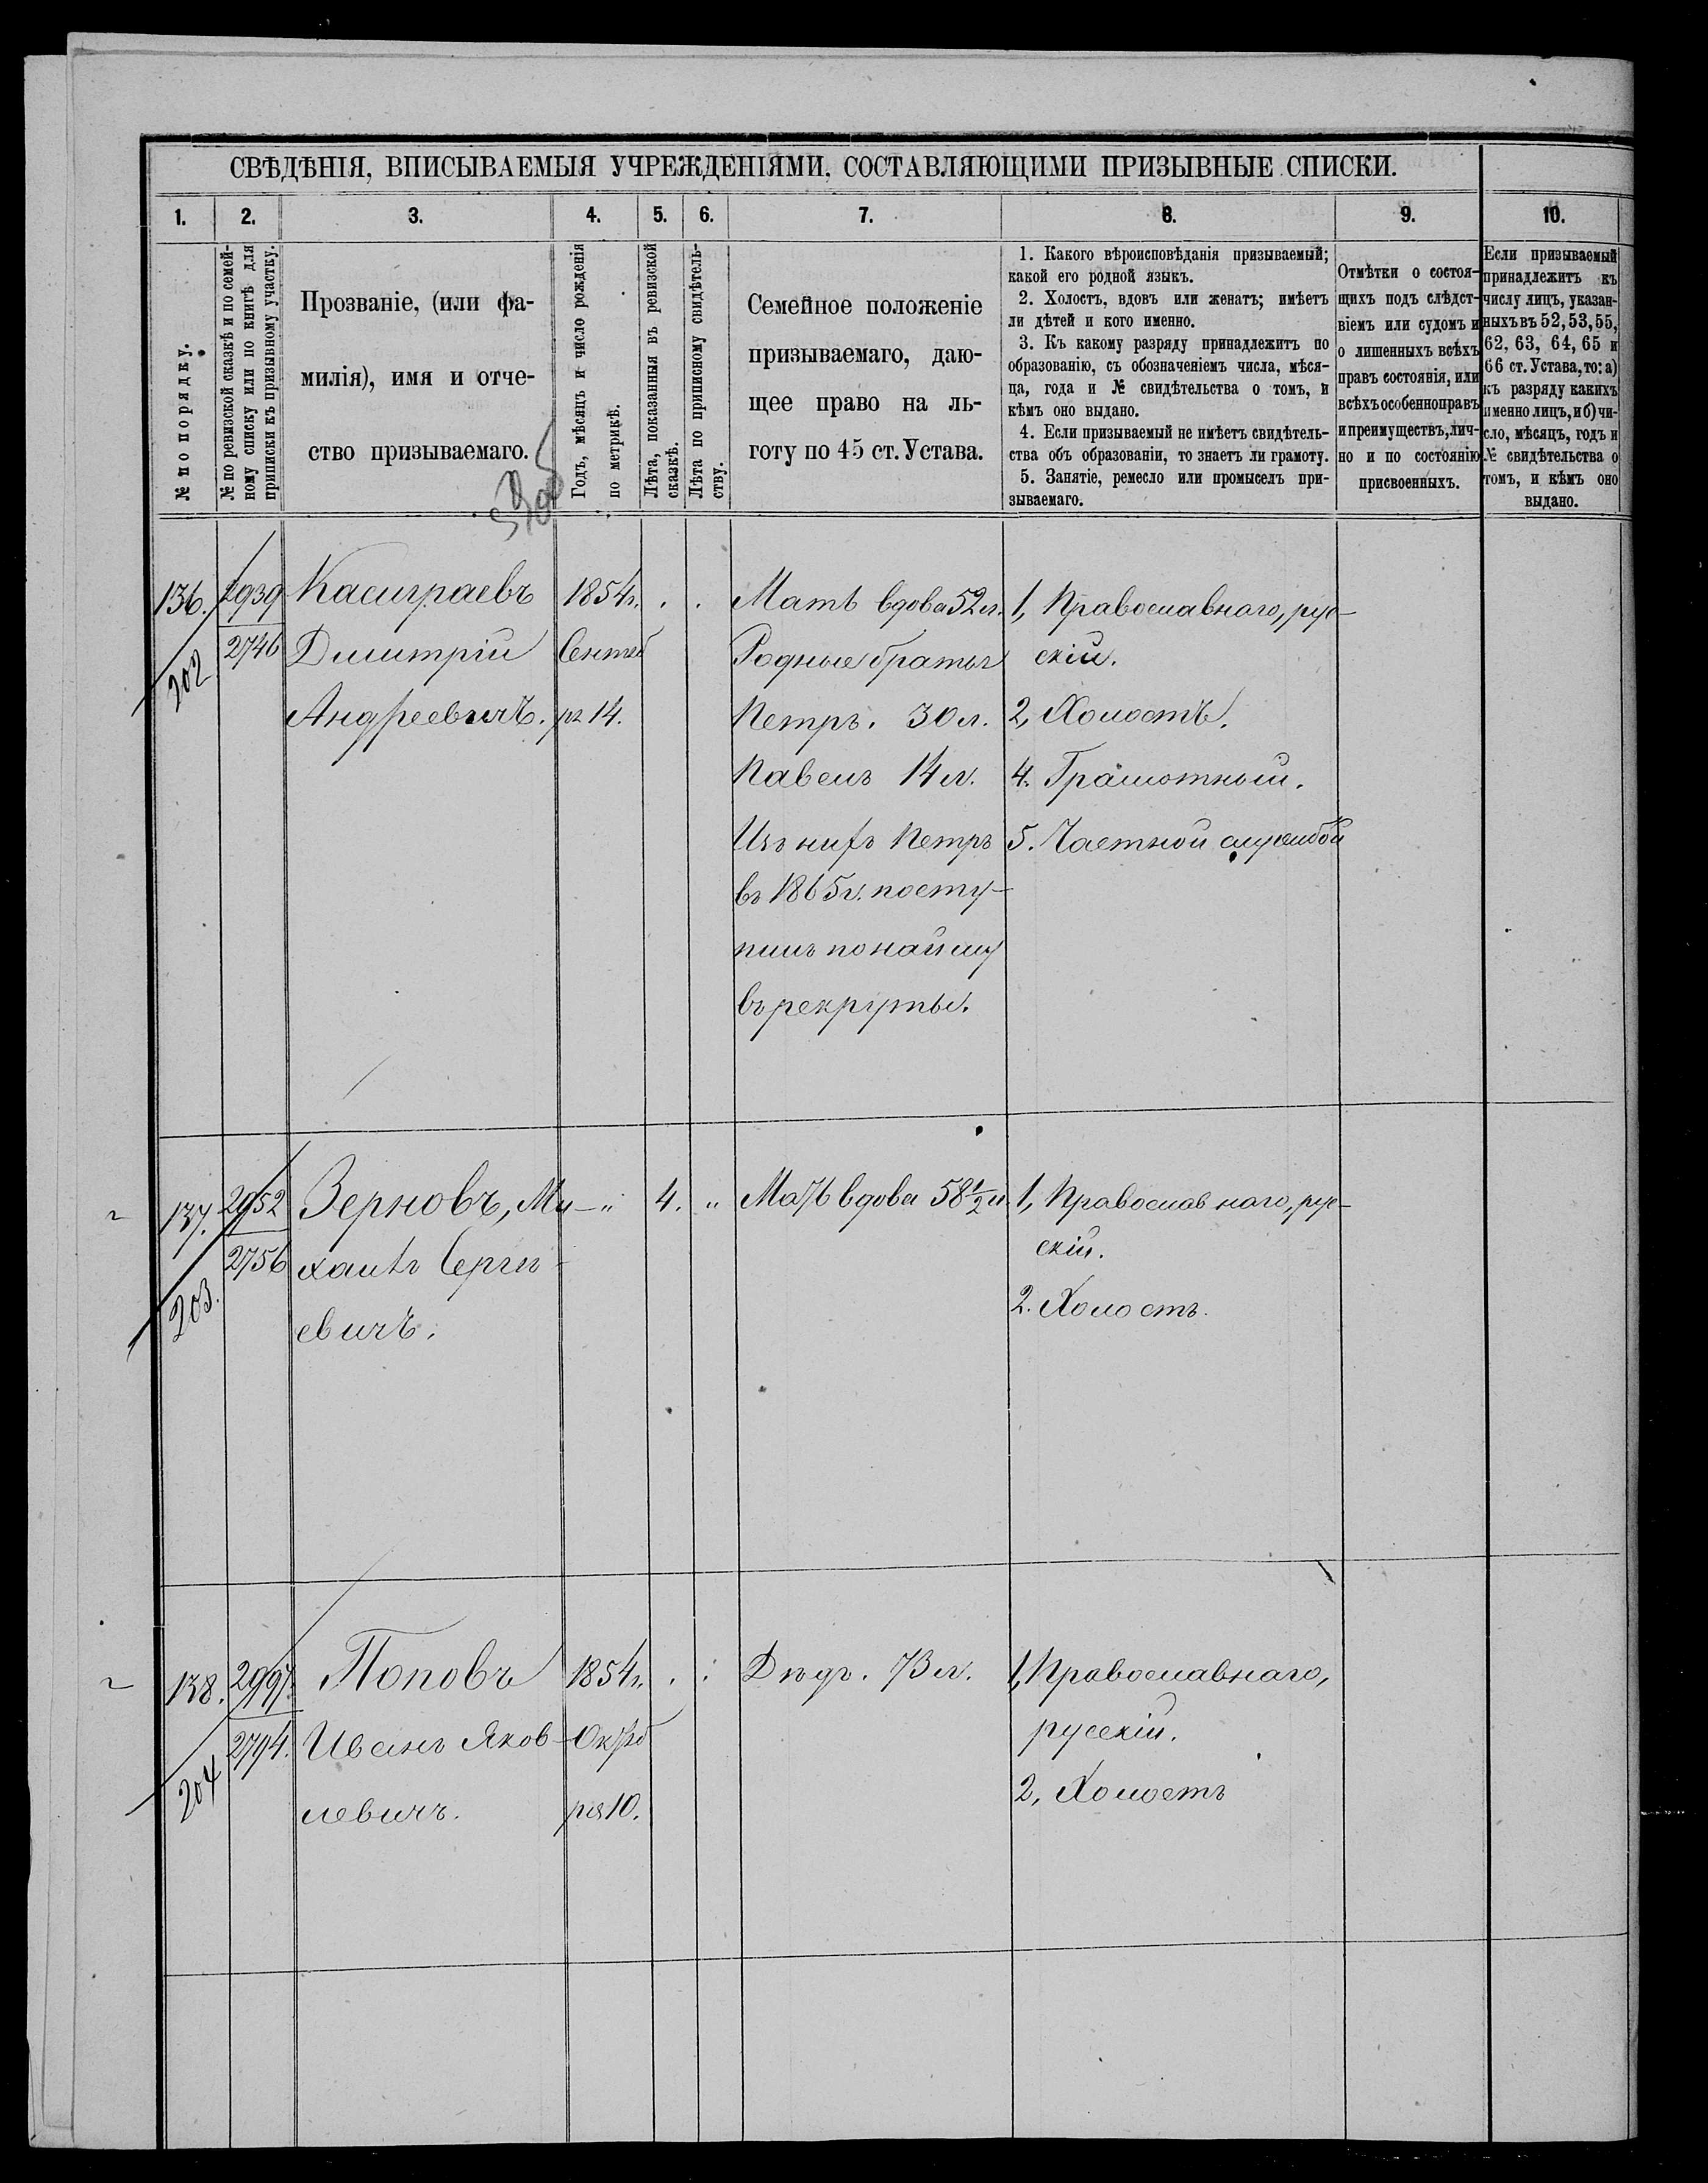 СВѢДѢНІЯ, ВПИСЫВАЕМЫЯ УЧРЕЖДЕНІЯМИ, СОСТАВЛЯЮЩИМИ ПРИЗЫВНЫЕ СПИСКИ.
1. 2. 3. 4. 5. 6. 7. 8. 9. 10.
№ по порядку.
№ по ревизской сказкѣ и по семей-
ному списку или по книгѣ для
приписки къ призывному участку.
Прозваніе, (или фа-
милія), имя и отче-
ство призываемаго.
Годъ, мѣсяцъ и число рожденія
по метрикѣ.
Лѣта, показанныя въ ревизской
сказкѣ.
Лѣта по приписному свидѣтель-
ству.
Семейное положеніе
призываемаго, даю-
щее право на ль-
готу по 45 ст. Устава.
1. Какого вѣроисповѣданія призываемый;
какой его родной языкъ.
2. Холостъ, вдовъ или женатъ; имѣетъ
ли дѣтей и кого именно.
3. Къ какому разряду принадлежитъ по
образованію, съ обозначеніемъ числа, мѣся-
ца, года и № свидѣтельства о томъ, и
кѣмъ оно выдано.
4. Если призываемый не имѣетъ свидѣтель-
ства объ образованіи, то знаетъ ли грамоту.
5. Занятіе, ремесло или промыселъ при-
зываемаго.
Отмѣтки о состоя-
щихъ подъ слѣдст-
віемъ или судомъ и
о лишенныхъ всѣхъ
правъ состоянія, или
всѣхъ особенно правъ
и преимуществъ, лич-
но и по состоянію
присвоенныхъ.
Если призываемый
принадлежитъ къ
числу лицъ, указан-
ныхъ въ 52, 53, 55,
62, 63, 64, 65 и
66 ст. Устава, то: а)
къ разряду какихъ
именно лицъ, и б) чи-
сло, мѣсяцъ, годъ и
№ свидѣтельства о
томъ, и кѣмъ оно
выдано.
136.
202
2939
2746
Касиграевъ
Димитрій
Андреевичъ.
1854 г.
Сентяб
ря 14.
Мать вдова 52 л.
Родные братья
Петръ. 30 л.
Павелъ 14 л.
Изъ нихъ Петръ
въ 1865 г. посту-
пилъ по найму
въ рекруты.
1, Православнаго, рус-
скій.
2, Холостъ.
4. Грамотный.
5. Частной службой
137.
203.
2952
2756
Зерновъ, Ми-
хаилъ Серги-
евичъ.
"
4.
"
Мать вдова 58 1/2 л
1, Православнаго, рус-
скій.
2. Холостъ.
138.
204
2997.
2794.
Поповъ
Иванъ Яков-
левичъ.
1854 г.
Октяб
ря 10.
Дѣдъ. 73 л.
1, Православнаго,
русскій.
2, Холостъ